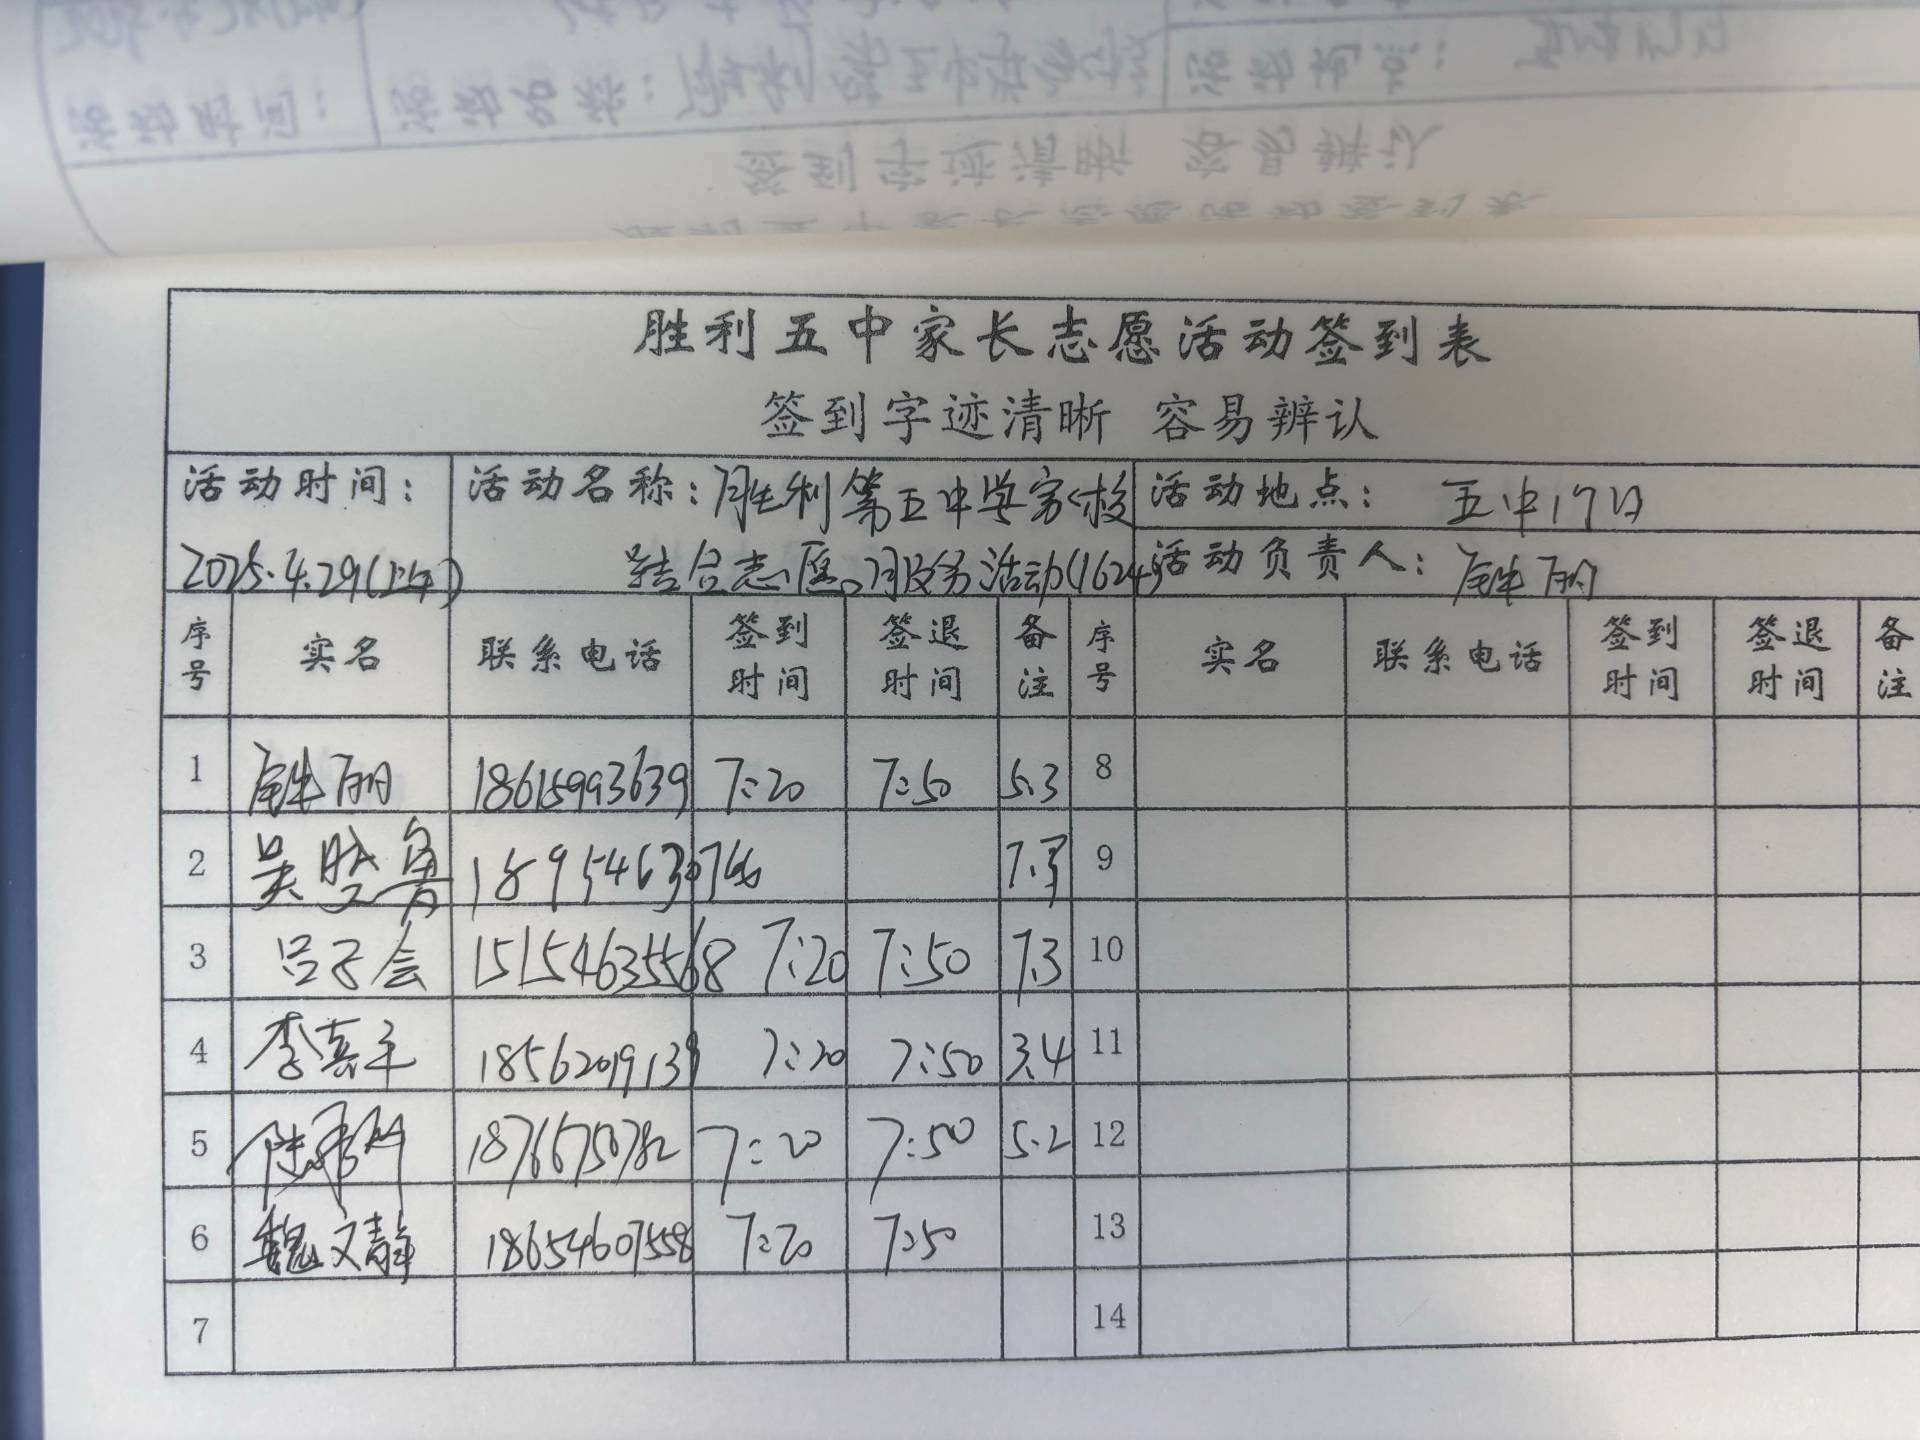 胜利五中家长志愿活动签到表
签到字迹清晰 容易辨认
活动时间： 活动名称：胜利第五中学家校 活动地点：五中门口
2025.4.29(上午) 结合志愿服务活动(1624) 活动负责人：丽
序号 实名 联系电话 签到时间 签退时间 备注 序号 实名 联系电话 签到时间 签退时间 备注
1 丽 18615993639 7:20 7:50 5.3 8
2 吴晓鲁 18954630766 7.3 9
3 吕子会 15154635568 7:20 7:50 7.3 10
4 李嘉 18562019139 7:20 7:50 3.4 11
5 陈 18766750782 7:20 7:50 5.2 12
6 魏文静 18654607558 7:20 7:50 13
7 14